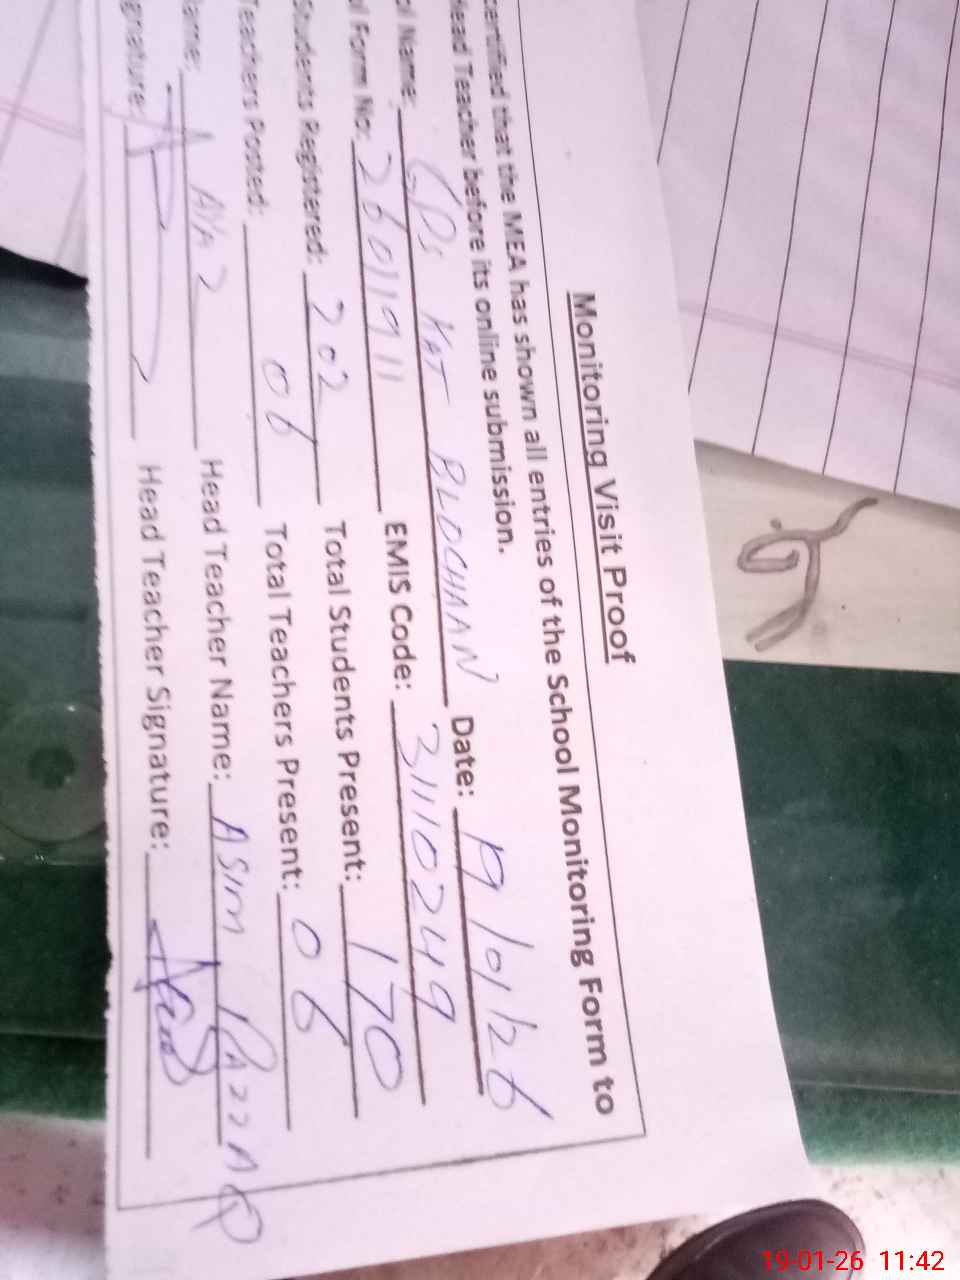 Monitoring Visit Proof
certified that the MEA has shown all entries of the School Monitoring Form to
Head Teacher before its online submission.
ol Name: GPS KAT BLOCHAAN Date: 19/01/26
l Form No: 260119 11 EMIS Code: 31110249
Students Registered: 202 Total Students Present: 170
Teachers Posted: 06 Total Teachers Present: 06
ame: Head Teacher Name: ASIM RAZZAQ
gnature: Head Teacher Signature:
19-01-26 11:42